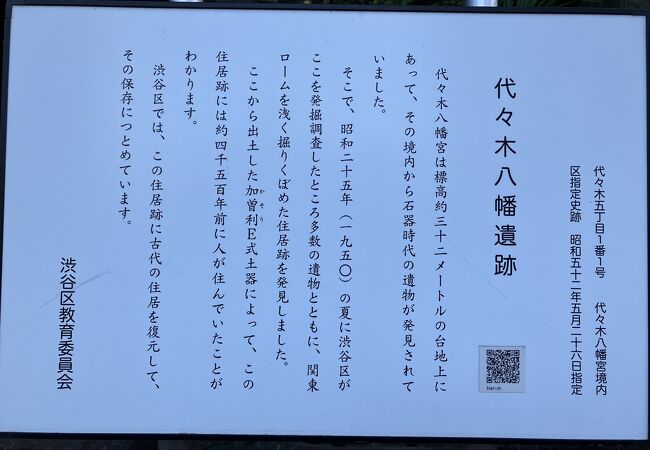 代々木五丁目1番1号　代々木八幡宮境内
区指定史跡　昭和五十二年五月二十六日指定
代々木八幡遺跡
代々木八幡宮は標高約三十二メートルの台地上に
あって、その境内から石器時代の遺物が発見されて
いました。
そこで、昭和二十五年（一九五〇）の夏に渋谷区が
ここを発掘調査したところ多数の遺物とともに、関東
ロームを浅く掘りくぼめた住居跡を発見しました。
ここから出土した加曽利E式土器によって、この
かそり
住居跡には約四千五百年前に人が住んでいたことが
わかります。
渋谷区では、この住居跡に古代の住居を復元して、
その保存につとめています。
渋谷区教育委員会
English